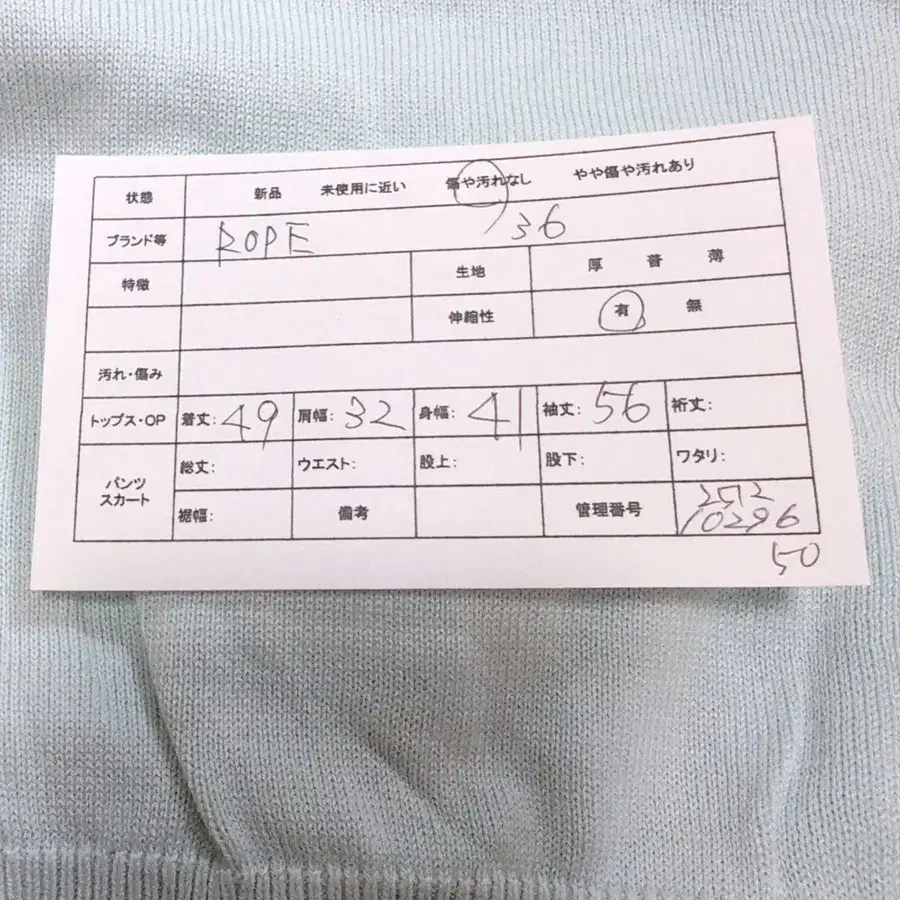 状態 新品 未使用に近い 傷や汚れなし やや傷や汚れあり
ブランド等 ROPE 36
特徴 生地 厚 普 薄
伸縮性 有 無
汚れ・傷み
トップス・OP 着丈: 49 肩幅: 32 身幅: 41 袖丈: 56 裄丈:
パンツ スカート 総丈: ウエスト: 股上: 股下: ワタリ:
裾幅: 備考 管理番号 2512
10296
50